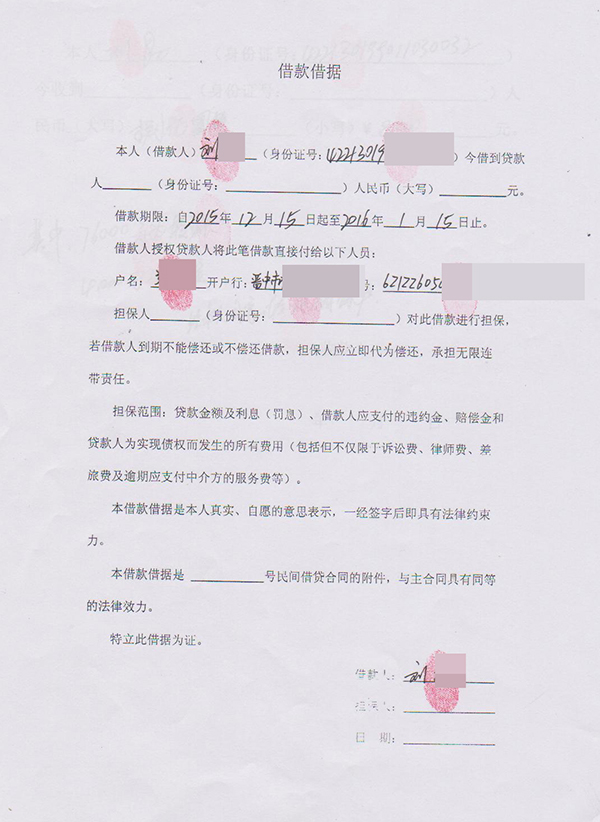 借款借据
本人（借款人）刘（身份证号：42213019）今借到贷款
人______（身份证号：______________）人民币（大写）________元。
借款期限：自2015年12月15日起至2016年1月15日止。
借款人授权贷款人将此笔借款直接付给以下人员：
户名：开户行：晋中市号：62122605
担保人______（身份证号：______________）对此借款进行担保，
若借款人到期不能偿还或不偿还借款，担保人应立即代为偿还，承担无限连
带责任。
担保范围：贷款金额及利息（罚息）、借款人应支付的违约金、赔偿金和
贷款人为实现债权而发生的所有费用（包括但不仅限于诉讼费、律师费、差
旅费及逾期应支付中介方的服务费等）。
本借款借据是本人真实、自愿的意思表示，一经签字后即具有法律约束
力。
本借款借据是 _________号民间借贷合同的附件，与主合同具有同等
的法律效力。
特立此借据为证。
借款人：刘
担保人：
日 期：